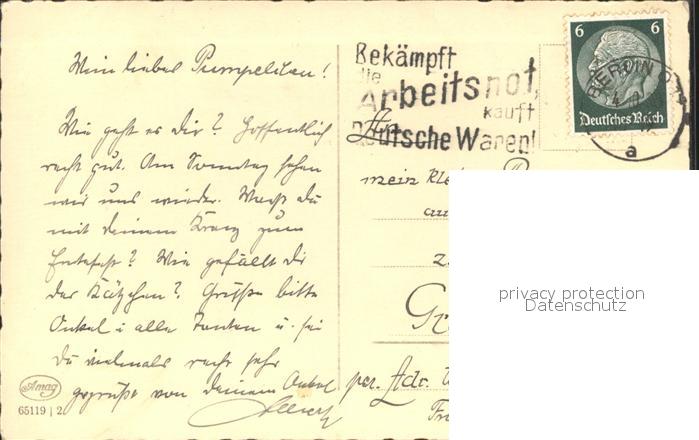 Mein liebes Pumpelchen!
Wie geht es dir? Hoffentlich
recht gut. Am Sonntag sehen
wir uns wieder. Wirst du
mit deinem Kranz zum
Erntefest? Wie gefällt dir
das Kätzchen? Grüße bitte
Onkel u. alle Tanten u. sei
du vielmals recht sehr
gegrüßt von deinem Onkel
Bekämpft
die
Arbeitsnot,
kauft
Deutsche Waren!
6 6
Deutsches Reich
BERLIN
a
An
mein kle
au
z.
G
per. Adr.
Fr
privacy protection
Datenschutz
Amag
65119 | 2.